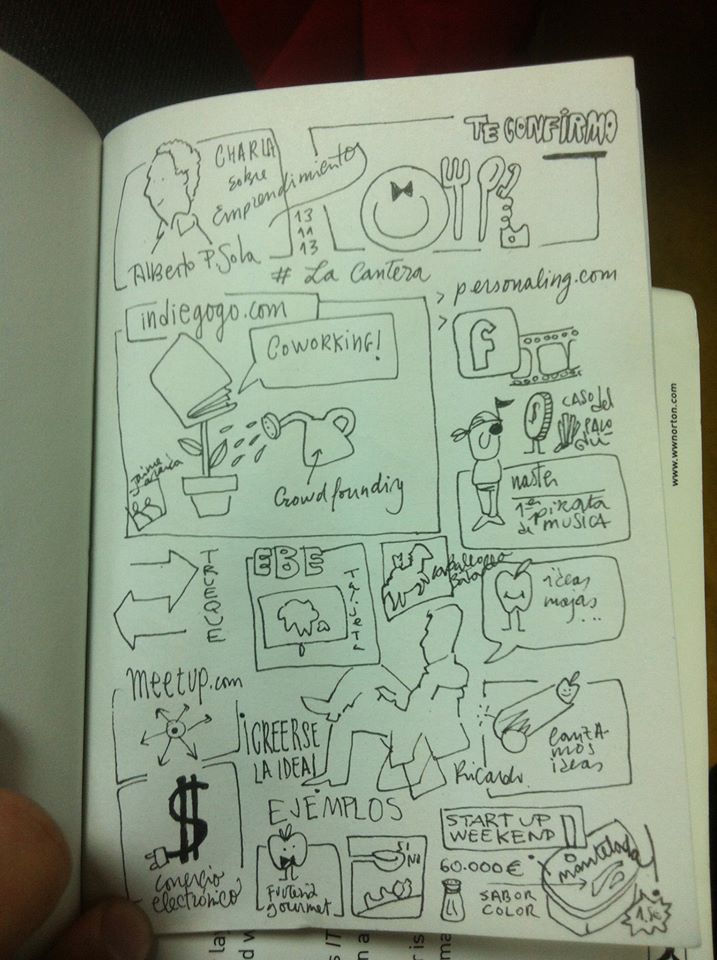 TE CONFIRMO
CHARLA
sobre
Emprendimiento
13
11
13
Alberto P. Sola
# La Cantera
> personaling.com
>
f
indiegogo.com
COWORKING!
Crowdfoundiry
CASO del
PALO
naster
1er pirata
de MUSICA
TRUEQUE
EBE
Tarjeta
ideas
mojas
...
meetup.com
¡CREERSE
LA IDEA!
Ricardo
lanza
mos
ideas
$
comercio
electrónico
EJEMPLOS
Frutería
gourmet
SI
NO
START UP
WEEKEND
60.000 €
SABOR
COLOR
mantelada
1,5€
www.wwnorton.com